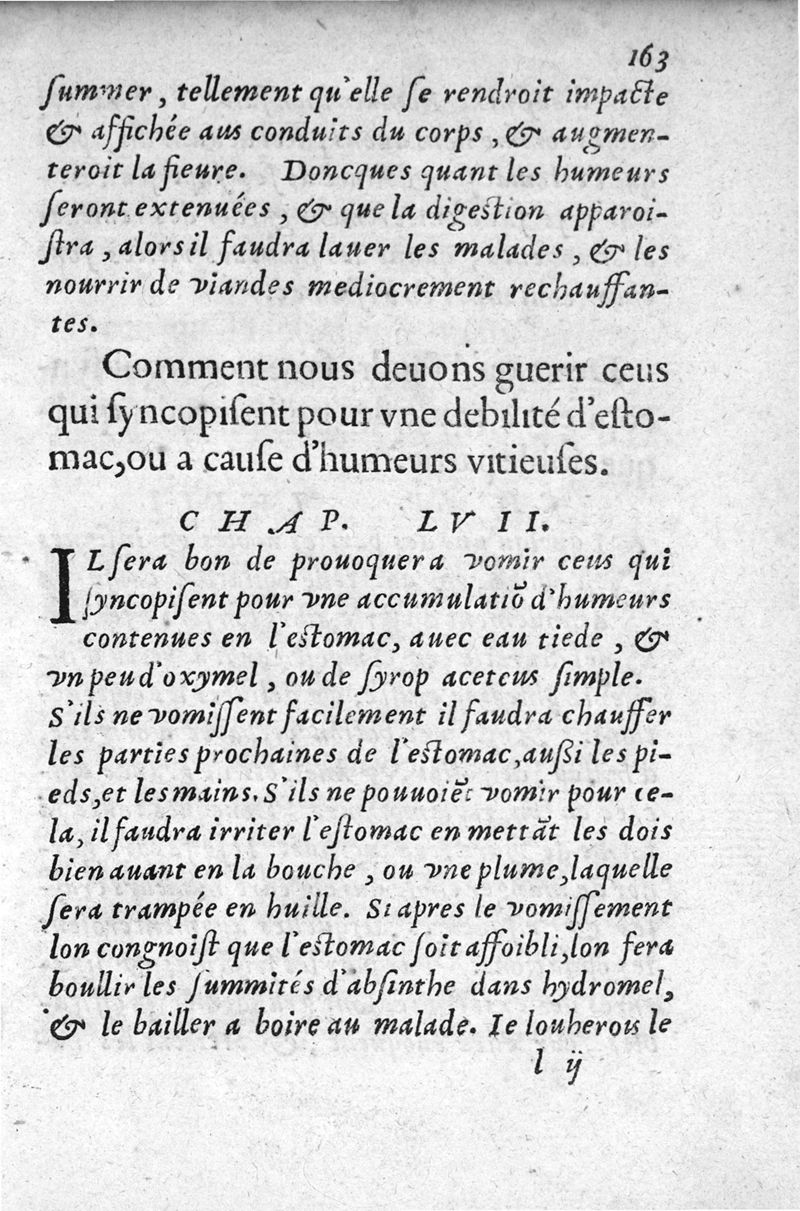 163
ſummer, tellement qu'elle ſe rendroit impacte
& affichée aus conduits du corps, & augmen-
teroit la fieure. Doncques quant les humeurs
ſeront extenuées, & que la digestion apparoi-
ſtra, alors il faudra lauer les malades, & les
nourrir de viandes mediocrement rechauffan-
tes.
Comment nous deuons guerir ceus
qui ſyncopiſent pour vne debilité d'eſto-
mac, ou a cauſe d'humeurs vitieuſes.
CHAP. LVII.
IL ſera bon de prouoquer a vomir ceus qui
ſyncopiſent pour vne accumulatiō d'humeurs
contenues en l'estomac, auec eau tiede, &
vn peu d'oxymel, ou de ſyrop aceteus ſimple.
S'ils ne vomiſſent facilement il faudra chauffer
les parties prochaines de l'estomac, außi les pi-
eds, et les mains. S'ils ne pouuoiēt vomir pour ce-
la, il faudra irriter l'eſtomac en mettāt les dois
bien auant en la bouche, ou vne plume, laquelle
ſera trampée en huille. Si apres le vomiſſement
lon congnoiſt que l'estomac ſoit affoibli, lon fera
boullir les ſummités d'abſinthe dans hydromel,
& le bailler a boire au malade. Ie louherous le
l ij